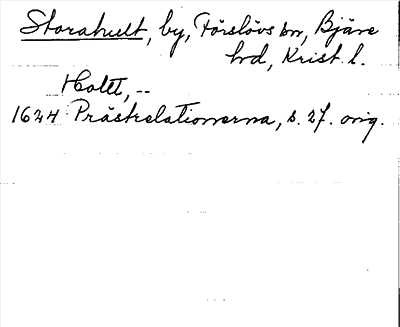 Storahult, by, Förslövs sn, Bjäre
hd, Krist. l.
Holtt, --
1624 Prästrelationerna, s. 27. orig.